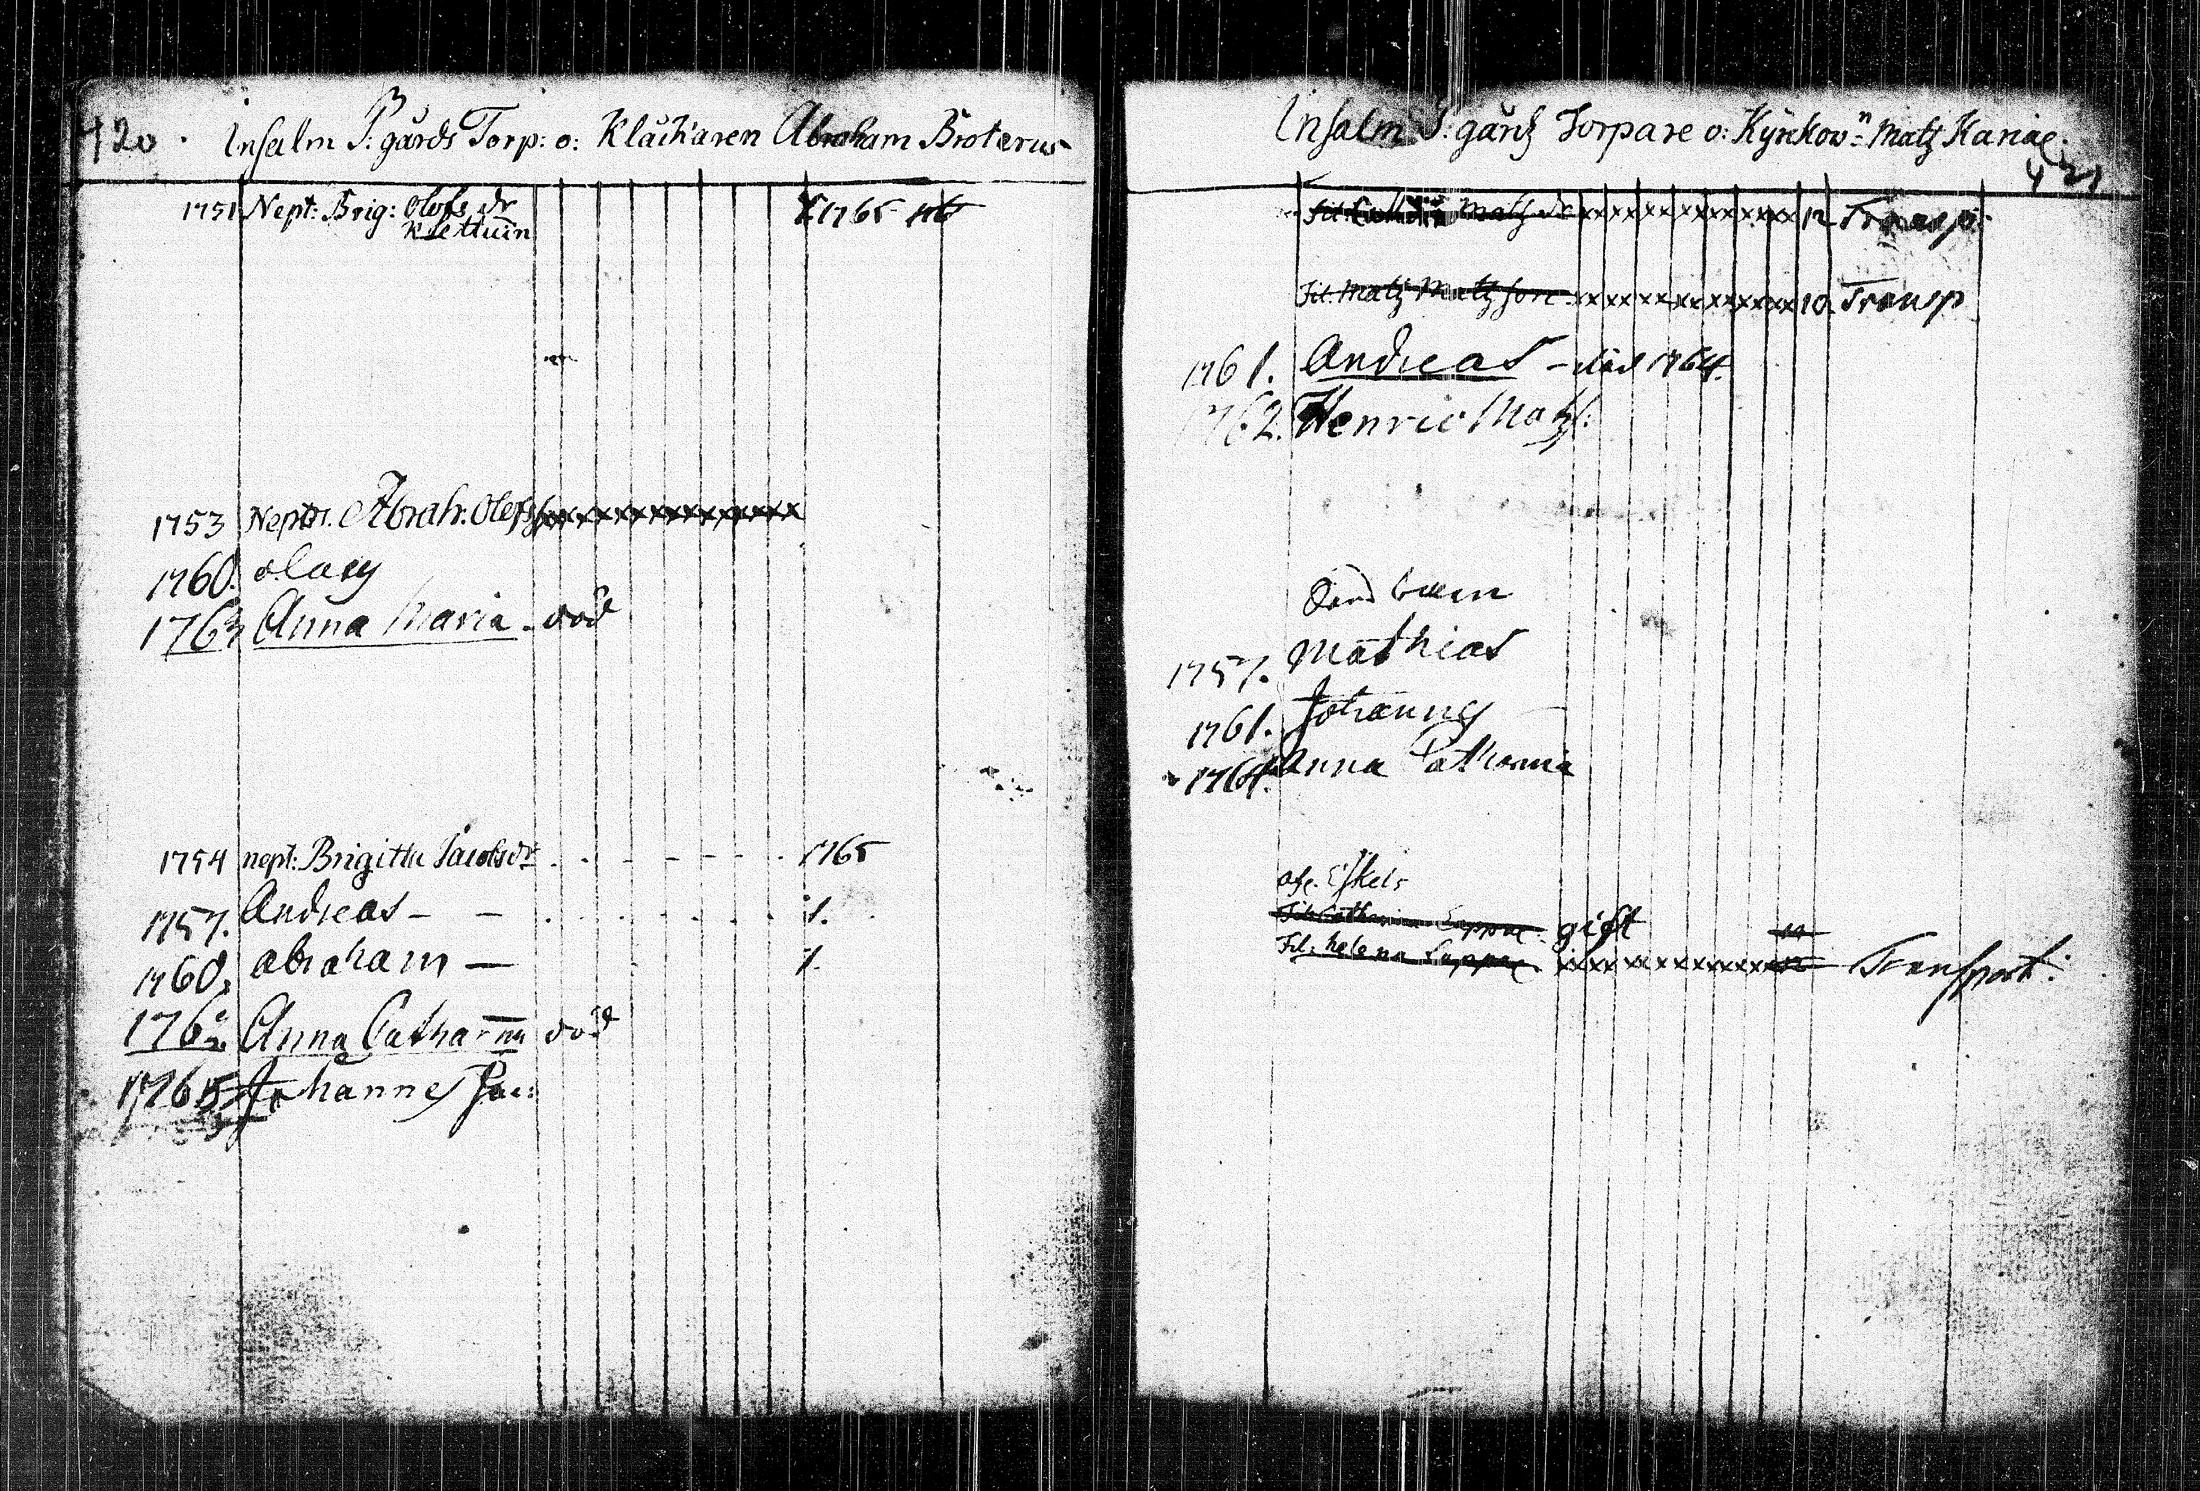 420. Insalm P: gårds Torp: o: Klåckaren Abraham Broterus
1751 Nept: Brig: Olofs dr X 1765
1753 Nept: Abrah: Olofss xxxxxxxxxxxxxx
1760. olaus
1763 Anna Maria - död
1754 nept: Brigitta Jacobs dr - - - - - - 1765
1757. Andreas - - . . . . . . 1.
1760. abraham - 1.
1762 Anna Catharina död
1765 Johannes Jac:
Insalm P: gårdz Torpare o: Kyrkow:n Matz Kariae.
421
Fil: Matz dr xxxxxxxxxxxxx 12 Transp:
Fil: Matz Matz son xxxxxxxxxxxxx 10 Transp
1761. Andreas - död 1764.
1762. Henric Matz:
Mathias
1757.
1761. Johannes
1764. Anna Catharina
Eskels
Fil: Catharina Lappal. gift
Fil: helena Lappal. xxxxxxxxxxxxx 12 Transport: